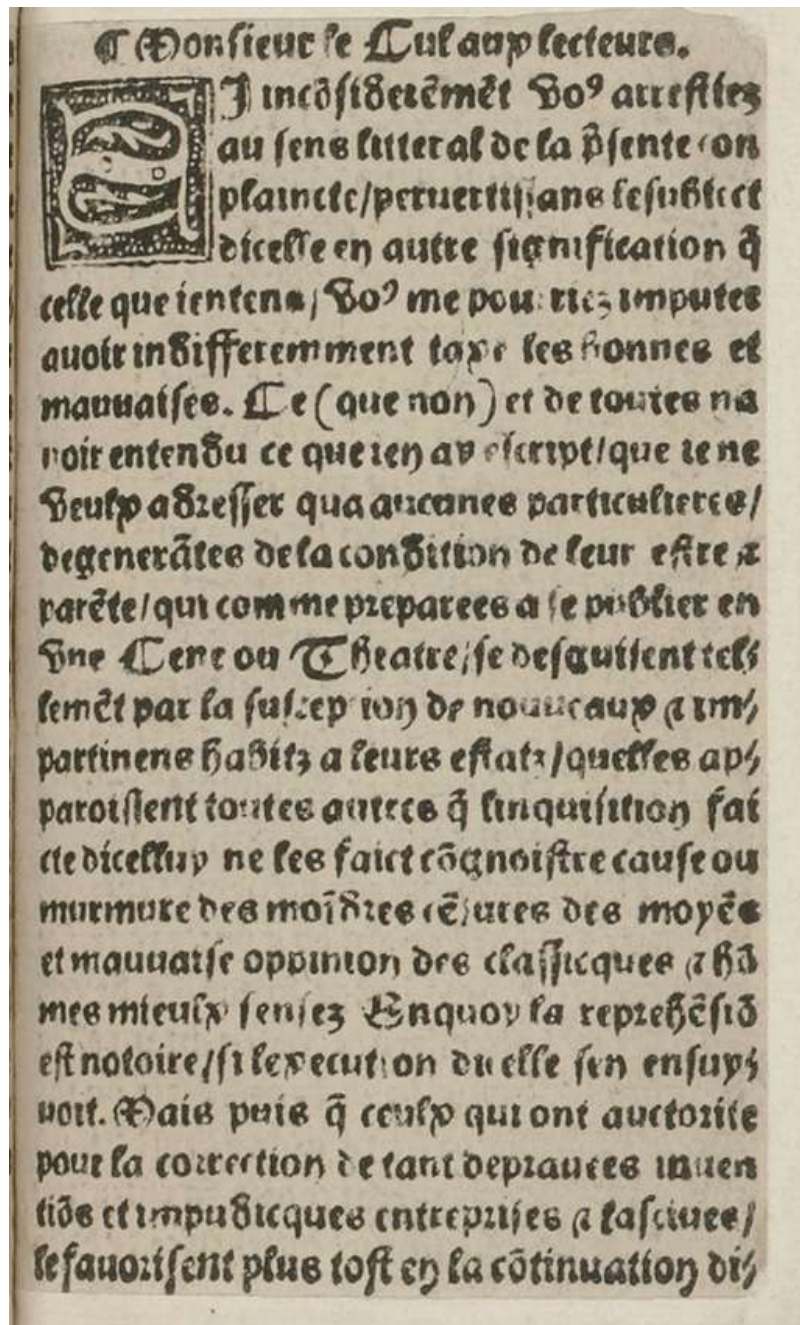 ¶ Monsieur le Cul aux lecteurs.
SI incōsiderēmēt voꝰ arrestiez
au sens litteral de la p̄sente con
plaincte/pervertissans le subiect
dicelle en autre signification q̄
celle que ientens/ voꝰ me pourriez imputer
avoir indifferemment taxe les bonnes et
mauuaises. Ce (que non) et de toutes na
voir entendu ce que ien ay escript/que ie ne
veulx adresser qua aucunes particulieres/
degenerātes de la condition de leur estre ⁊
parēte/qui comme preparees a se publier en
vne Cene ou Theatre/se desguisent tell⸗
lemēt par la suscep ion de nouueaux ⁊ im⸗
partinens habitz a leurs estatz/quelles ap⸗
paroissent toutes autres q̄ linquisition fai
cte dicelluy ne les faict cōgnoistre cause ou
murmure des moīdres cēsures des moyēs
et mauuaise oppinion des classicques ⁊ hō
mes mieulx sensez Enquoy la reprehēsiō
est notoire/si lexecution du elle sen ensuy⸗
uoit. Mais puis q̄ ceulx qui ont auctorite
pour la correction de tant deprauees inuen
tiōs et impudicques entreprises ⁊ lasciues/
le fauorisent plus tost en la cōtinuation di⸗